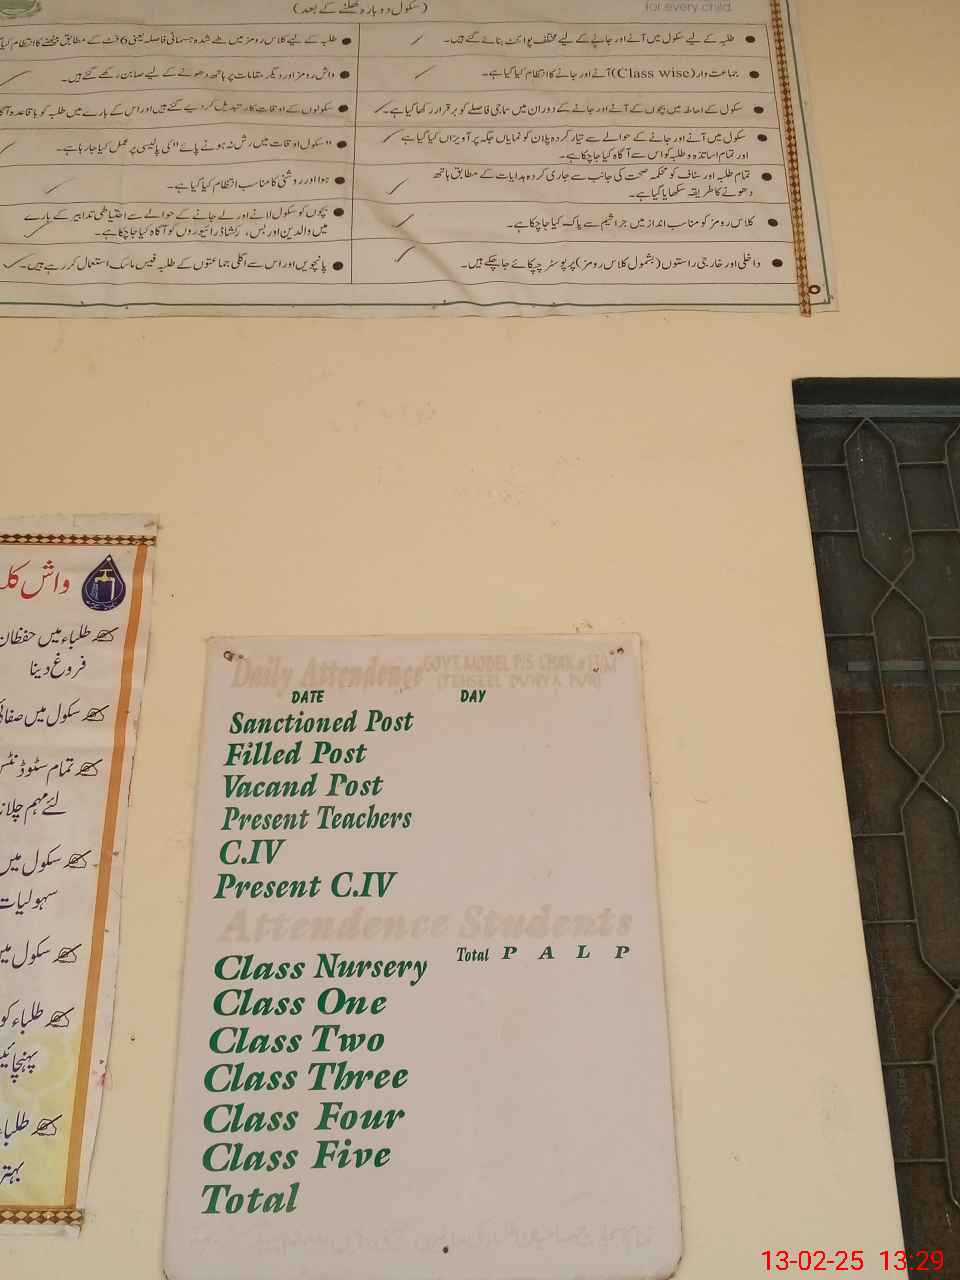 (سکول دوبارہ کھلنے کے بعد)
for every child
طلبہ کے لیے سکول میں آنے اور جانے کے لیے مختلف پوائنٹ بنائے گئے ہیں۔
جماعت وار (Class wise) آنے اور جانے کا انتظام کیا گیا ہے۔
سکول کے احاطہ میں بچوں کے آنے اور جانے کے دوران میں سماجی فاصلے کو برقرار رکھا گیا ہے۔
سکول میں آنے اور جانے کے حوالے سے تیار کردہ پلان کو نمایاں جگہ پر آویزاں کیا گیا ہے
اور تمام اساتذہ و طلبہ کو اس سے آگاہ کیا جا چکا ہے۔
تمام طلبہ اور سٹاف کو محکمہ صحت کی جانب سے جاری کردہ ہدایات کے مطابق ہاتھ
دھونے کا طریقہ سکھایا گیا ہے۔
کلاس رومز کو مناسب انداز میں جراثیم سے پاک کیا جا چکا ہے۔
داخلی اور خارجی راستوں (بشمول کلاس رومز) پر پوسٹر چپکائے جا چکے ہیں۔
طلبہ کے لیے کلاس رومز میں طے شدہ جسمانی فاصلہ یعنی 6 فٹ کے مطابق بیٹھنے کا انتظام کیا
واش رومز اور دیگر مقامات پر ہاتھ دھونے کے لیے صابن رکھے گئے ہیں۔
سکولوں کے اوقات کار تبدیل کر دیے گئے ہیں اور اس کے بارے میں طلبہ کو باقاعدہ
"سکول اوقات میں رش نہ ہونے پائے" کی پالیسی پر عمل کیا جا رہا ہے۔
ہوا اور روشنی کا مناسب انتظام کیا گیا ہے۔
بچوں کو سکول لانے اور لے جانے کے حوالے سے احتیاطی تدابیر کے بارے
میں والدین اور بس، رکشا ڈرائیوروں کو آگاہ کیا جا چکا ہے۔
پانچویں اور اس سے اگلی جماعتوں کے طلبہ فیس ماسک استعمال کر رہے ہیں۔
واش
طلباء میں
فروغ دینا
سکول میں
تمام سٹوڈنٹس
لئے مہم
سکول میں
سہولیات
سکول میں
طلباء کو
Daily Attendence GOVT.MODEL P/S CHAK #
(TEHSEEL DUNYA PUR)
DATE DAY
Sanctioned Post
Filled Post
Vacand Post
Present Teachers
C.IV
Present C.IV
Attendence Students
Total P A L P
Class Nursery
Class One
Class Two
Class Three
Class Four
Class Five
Total
13-02-25 13:29